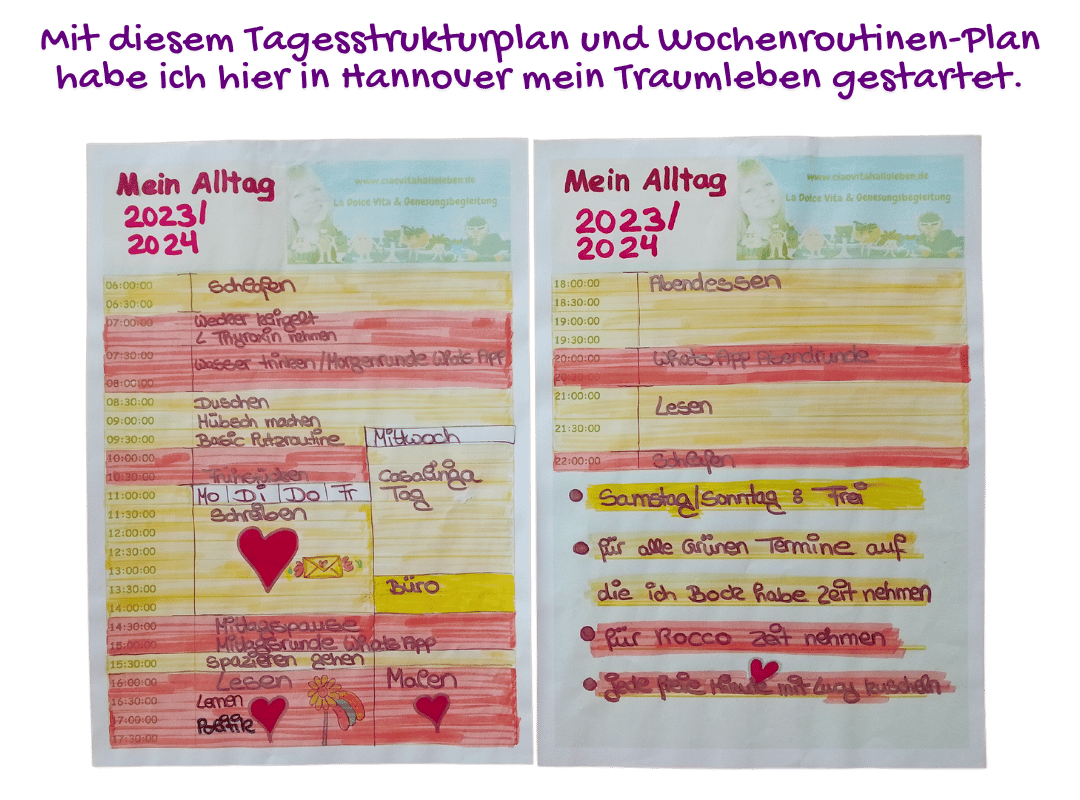 Mit diesem Tagesstrukturplan und Wochenroutinen-Plan
habe ich hier in Hannover mein Traumleben gestartet.
Mein Alltag
2023/
2024
www.ciaovitahalloleben.de
La Dolce Vita & Genesungsbegleitung
06:00:00 Schlafen
06:30:00
07:00:00 Wecker klingelt
L Thyroxin nehmen
07:30:00 Wasser trinken/Morgenrunde Whats App
08:00:00
08:30:00 Duschen
09:00:00 Hübsch machen
09:30:00 Basic Putzroutine Mittwoch
10:00:00
10:30:00 Frühstücken Casalinga
Tag
11:00:00 Mo Di Do Fr
11:30:00 Schreiben
12:00:00
12:30:00
13:00:00
13:30:00 Büro
14:00:00
14:30:00 Mittagspause
15:00:00 Mittagsrunde Whats App
15:30:00 spazieren gehen
16:00:00 Lesen Malen
16:30:00 Lernen
17:00:00
17:30:00
Mein Alltag
2023/
2024
www.ciaovitahalloleben.de
La Dolce Vita & Genesungsbegleitung
18:00:00 Abendessen
18:30:00
19:00:00
19:30:00
20:00:00 Whats App Abendrunde
20:30:00
21:00:00 Lesen
21:30:00
22:00:00 Schlafen
Samstag/Sonntag : Frei
für alle Grünen Termine auf
die ich Bock habe Zeit nehmen
für Rocco Zeit nehmen
jede freie Minute mit Lucy kuscheln